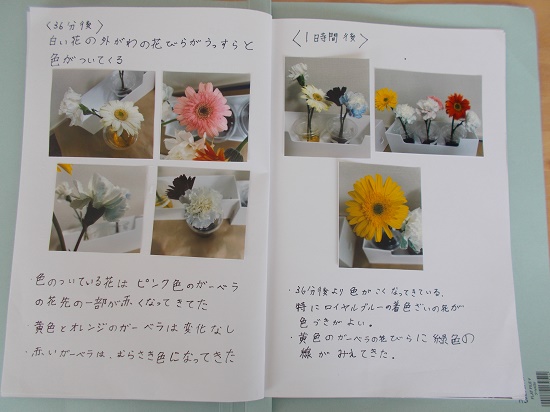 〈36分後〉
白い花の外がわの花びらがうっすらと
色がついてくる
・色のついている花は ピンク色のガーベラ
の花先の一部が赤くなってきてた
・黄色とオレンジのガーベラは変化なし
・赤いガーベラは、むらさき色になってきた
〈1時間後〉
・36分後より色がこくなってきている。
特にロイヤルブルーの着色ざいの花が
色づきがよい。
・黄色のガーベラの花びらに緑色の
線がみえてきた。